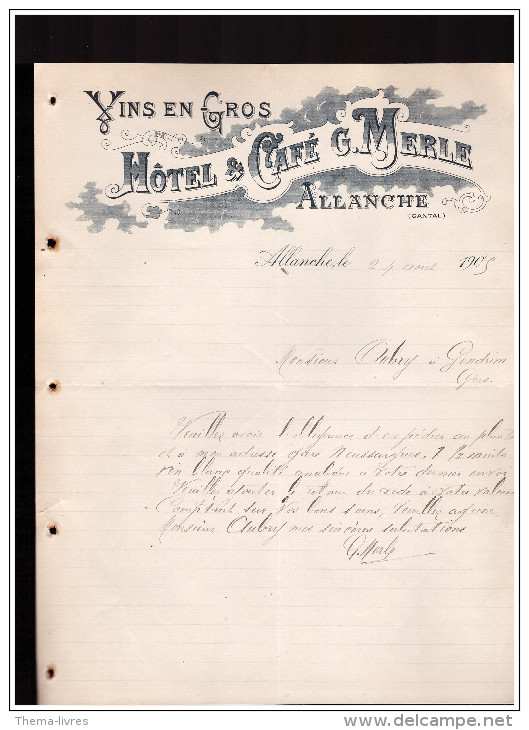 VINS EN GROS
HÔTEL & CAFÉ G. MERLE
ALLANCHE
(CANTAL)
Allanche, le 24 août 1905
Monsieur Aubry à Gondrin
Gers.
Veuillez avoir l'obligeance d'expédier au plutôt
à mon adresse gare Neussargues, 1 1/2 muids
vin blanc qualité à votre dernier envoi
Veuillez ajouter le à votre valeur
Comptant sur vos bons soins, Veuillez agréer
Monsieur Aubry mes sincères salutations
G Merle
Thema-livres
delcampe.net